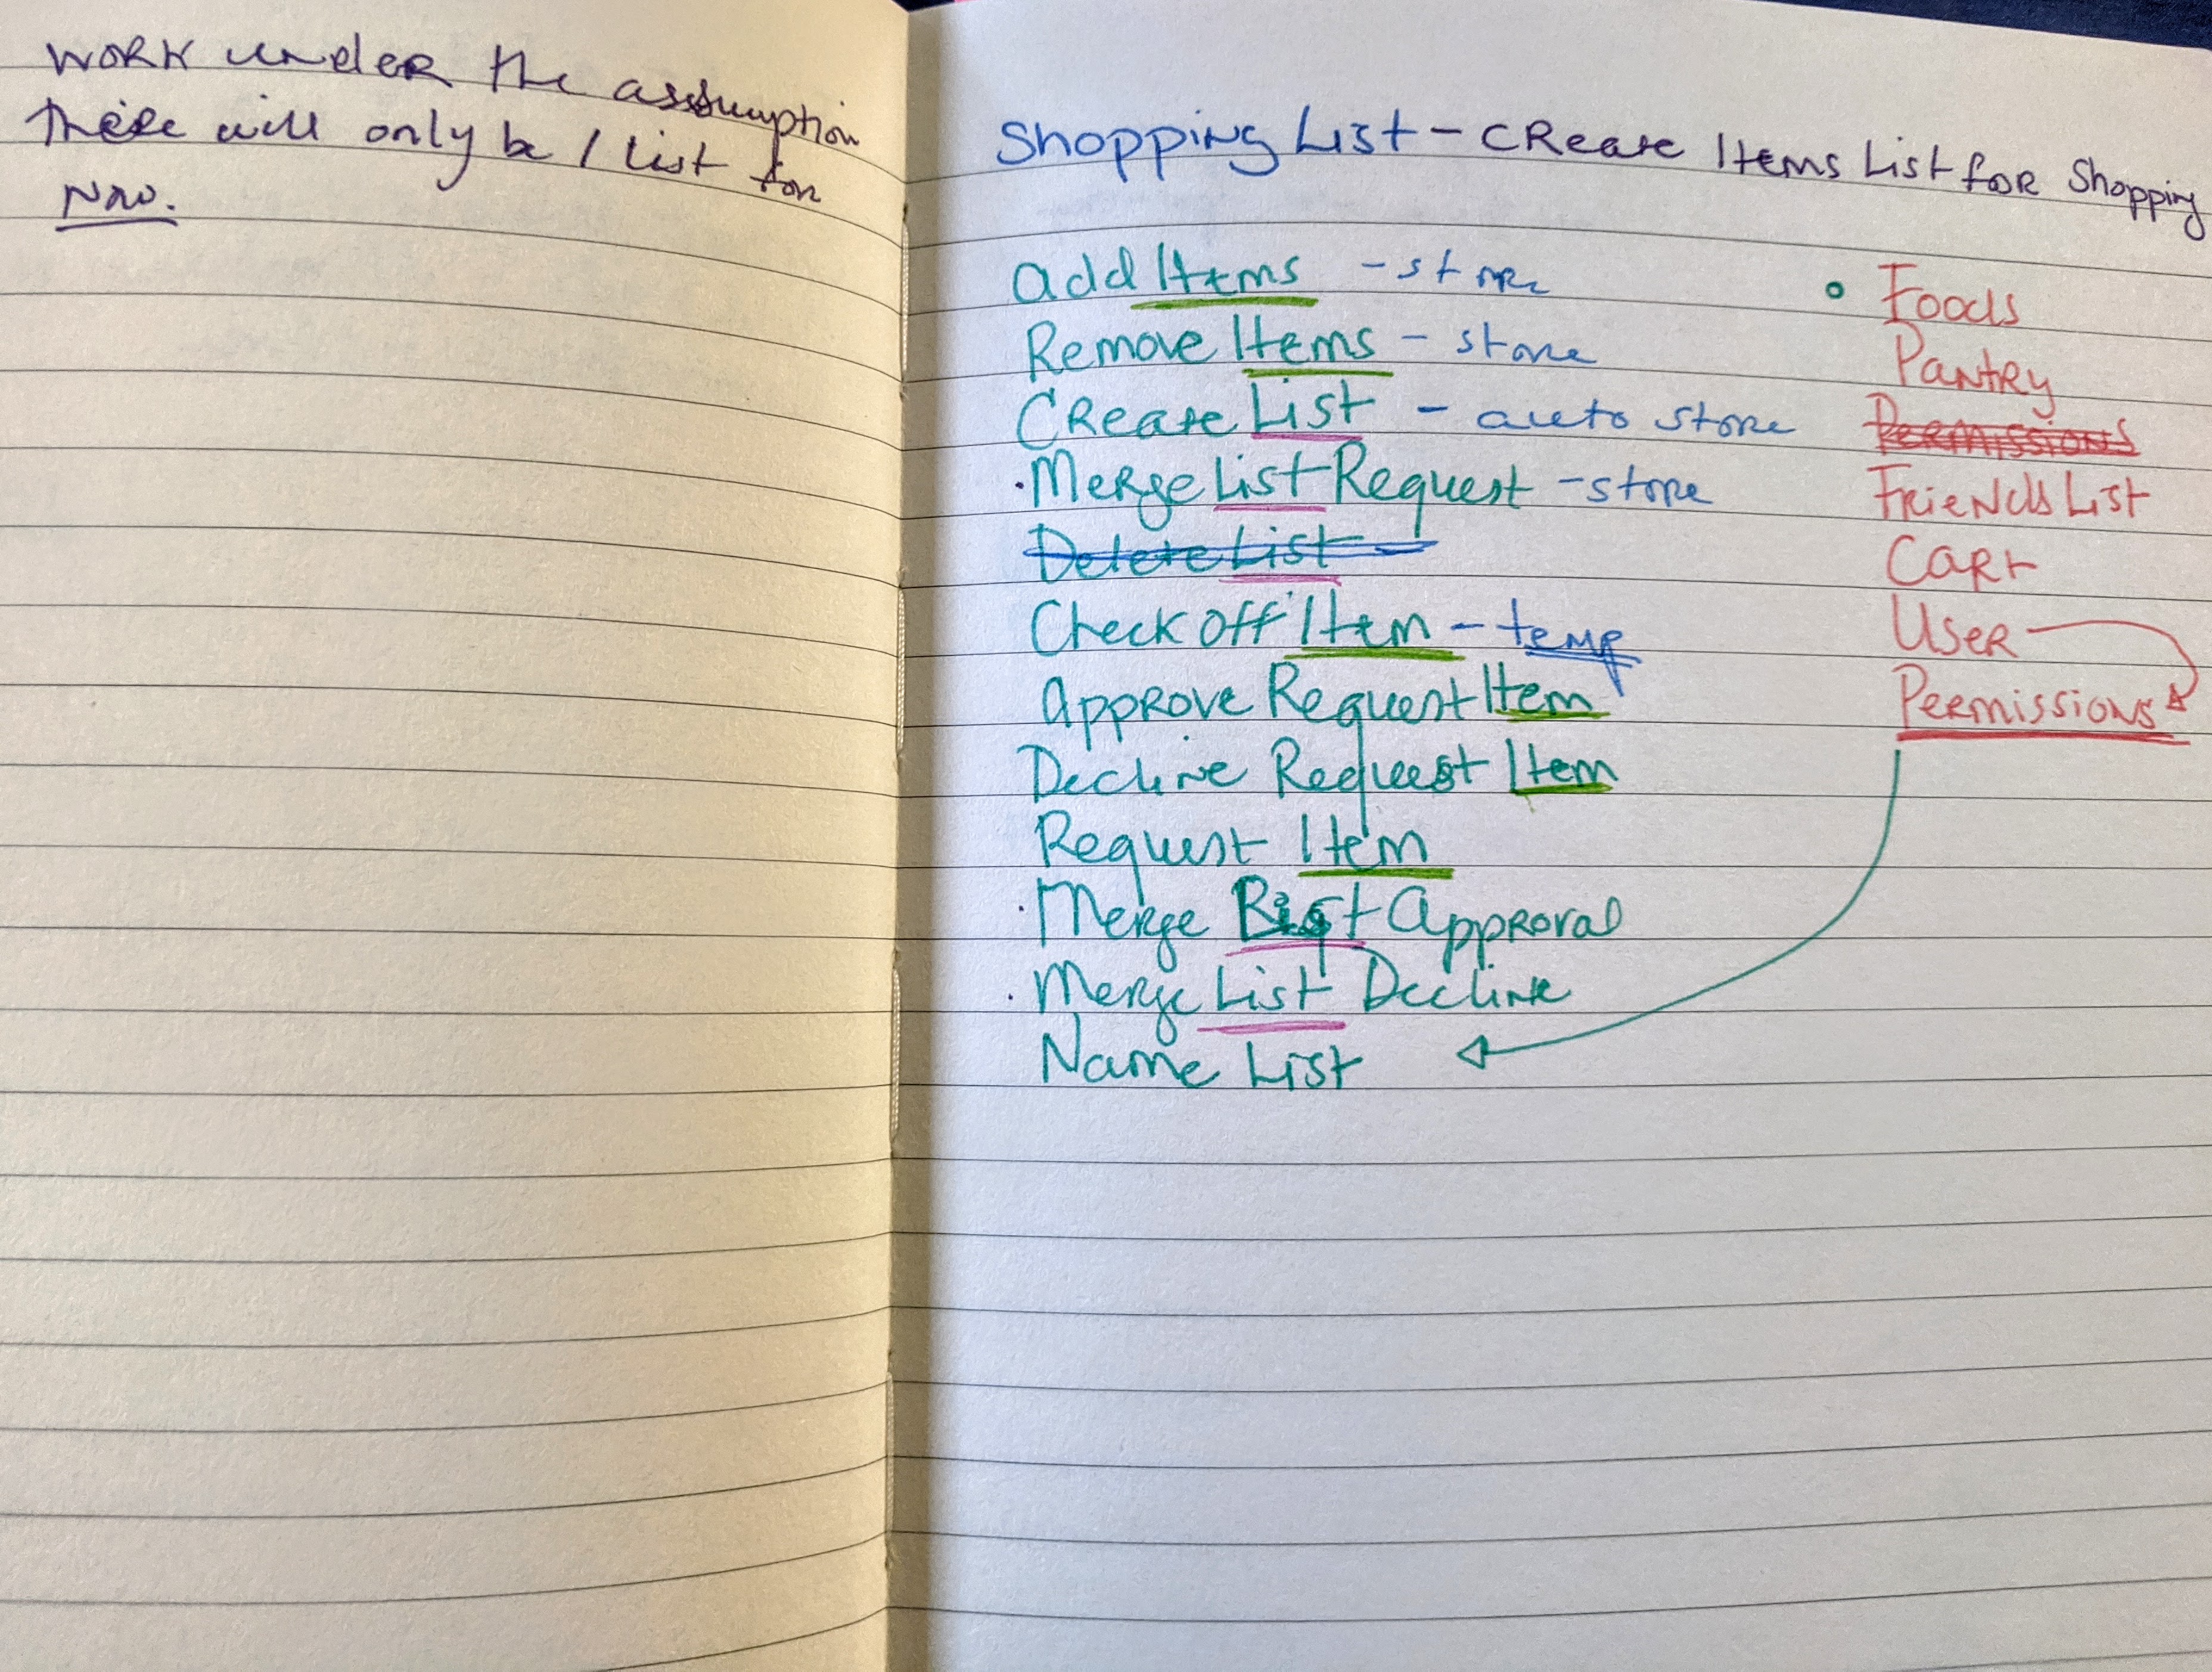 Work under the assumption
there will only be 1 list for
now.
Shopping List - Create Items List for Shopping
Add Items - store
Remove Items - store
Create List - auto store
Merge List Request - store
Delete List -
Check off Item - temp
Approve Request Item
Decline Request Item
Request Item
Merge List Approval
Merge List Decline
Name List
Foods
Pantry
Permissions
Friends List
Cart
User
Permissions